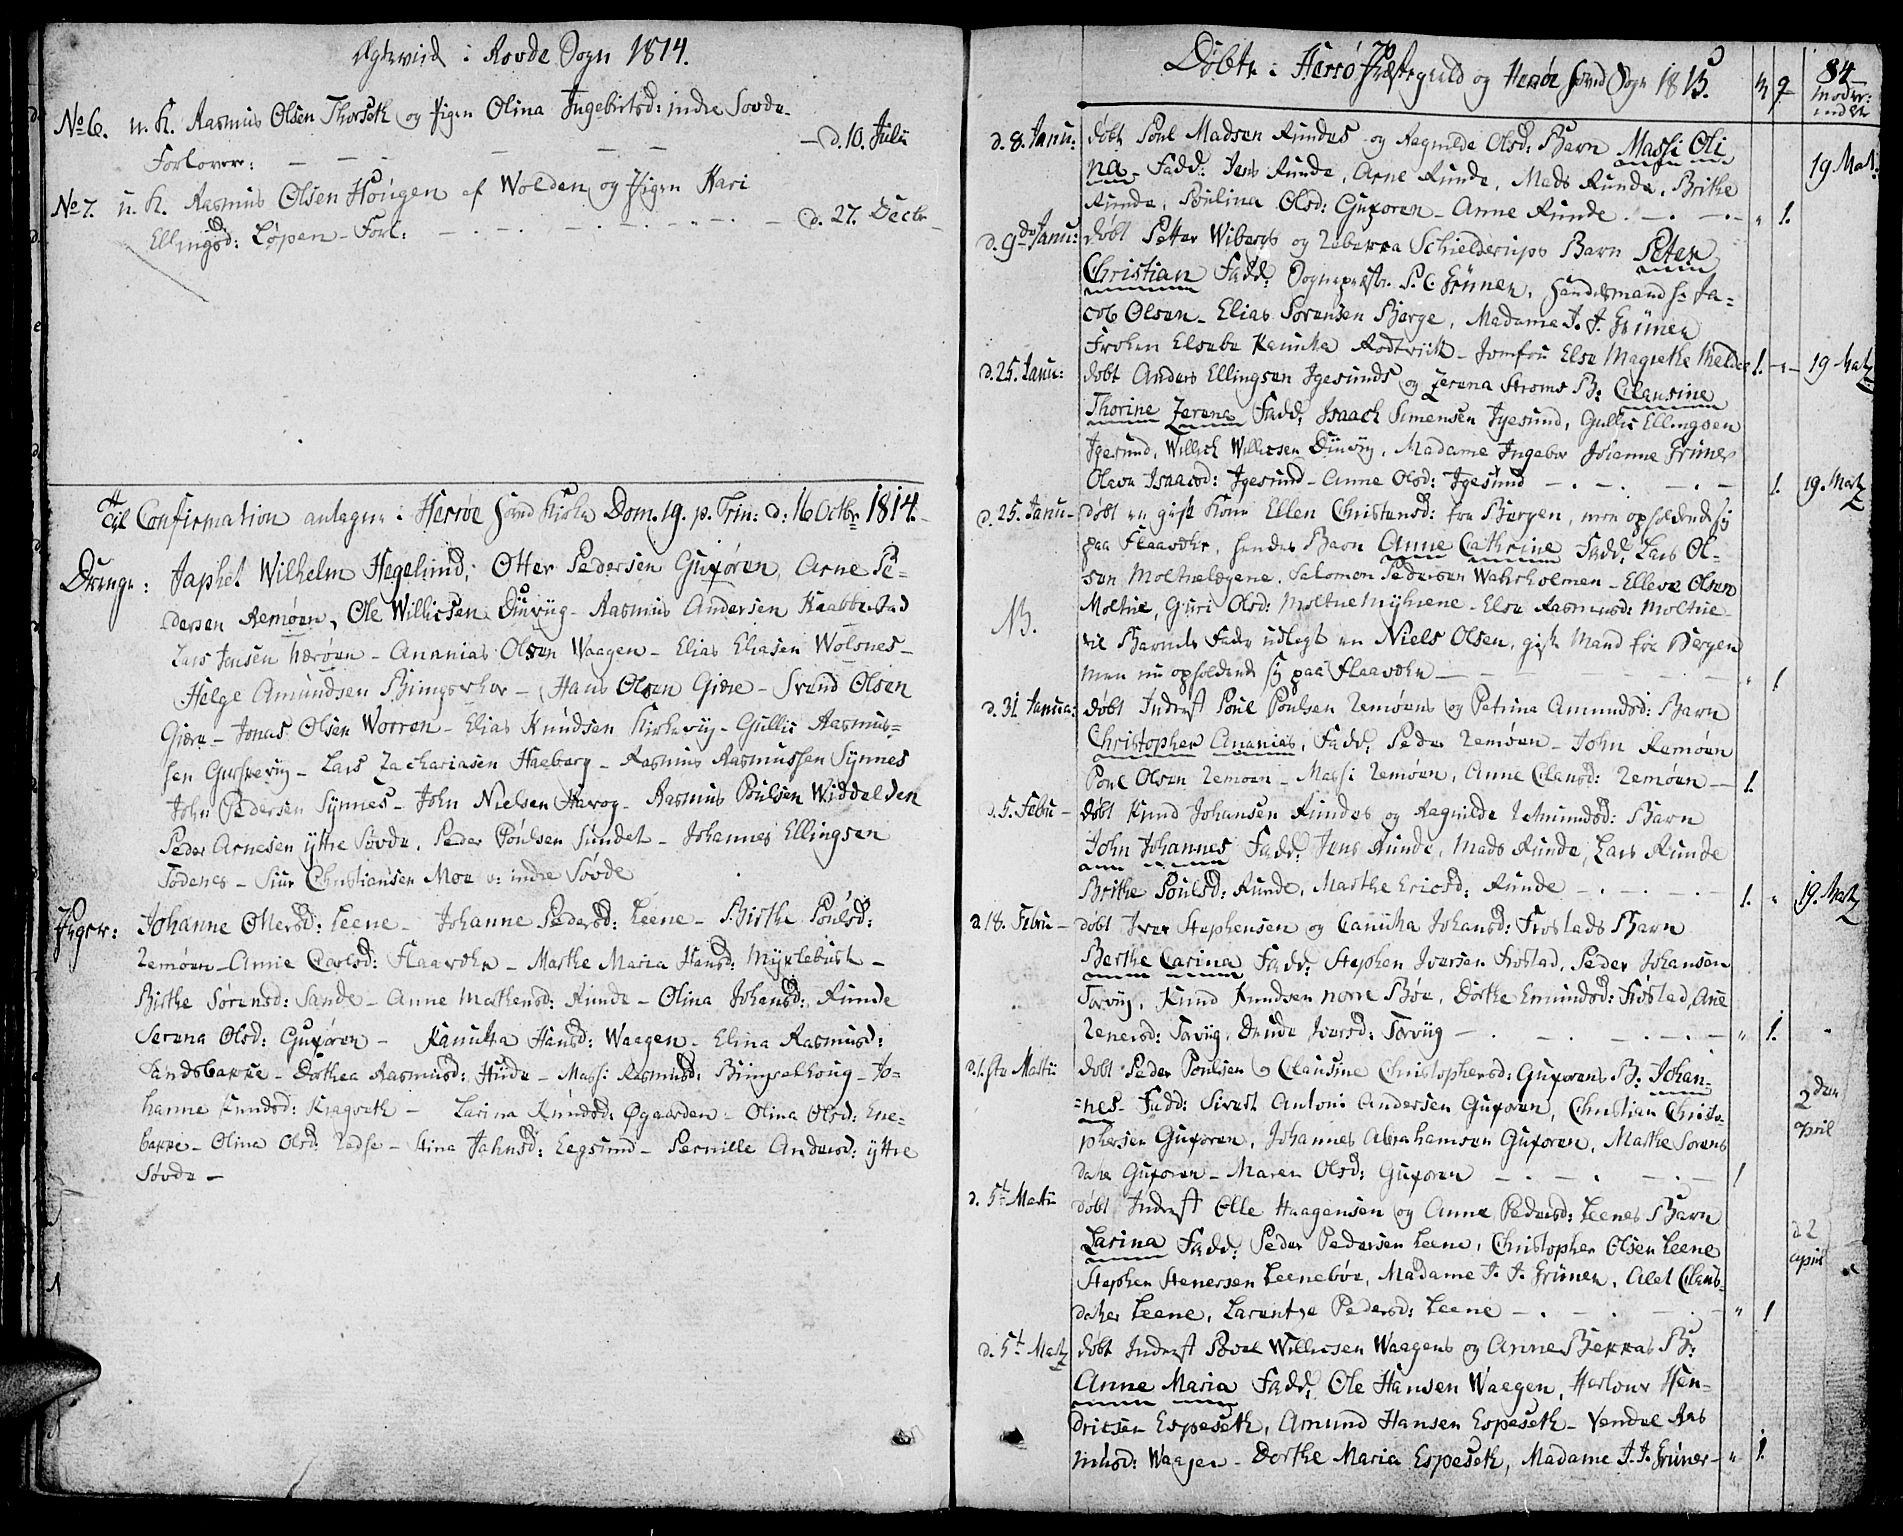 Ægteviede i Rovde Sogn 1814.
No 6. u. K. Rasmus Olsen Thorseth og Pigen Olina Ingebrigtsd: indre Sovde
Forlovere: — — — — d. 10. Julii
No 7. u. K. Rasmus Olsen Hougen af Wolden og Pigen Kari
Ellingsd: Løpen - Forl: — — — d. 27. Decbr
Til Confirmation antagne i Herrøe Hoved Kirke Dom. 19. p. Trin: d: 16 Octbr 1814.
Drenge: Japhet Wilhelm Hegelund, Otter Pedersen Gurxøren, Arne Pe-
dersen Remøen, Ole Willicsen Diuvug - Rasmus Andersen Kaabbestad
Lars Jensen Herøen - Ananias Olsen Waagen - Elias Eliasen Wolsnes -
Helge Amundsen Bringsvhor - Hans Olsen Giere - Svend Olsen
Giere - Jonas Olsen Worren - Elias Knudsen Kirkevig - Gullic Rasmus-
sen Gurskevig - Lars Zachariasen Hageberg - Rasmus Rasmussen Synnes
John Pedersen Synnes - John Nielsen Havog - Rasmus Poulsen Widdelden
Peder Arnesen yttre Søvde, Peder Poulsen Sundet - Johannes Ellingsen
Todenes - Siur Christiansen Moe v: indre Søvde
Piger: Johanne Ottersd: Leene - Johanne Pedersd: Leene - Birthe Poulsd:
Remøen - Anne Carlsd: Flaavær - Marthe Maria Hansd: Myrlebust -
Birthe Sørensd: Sande - Anne Mathensd: Runde - Olina Johansd: Runde
Serena Olsd: Guxøren - Kanutta Hansd: Waagen - Elina Rasmusd:
Sandsbakke - Dorthea Rasmusd: Hude - Massi Rasmusd: Bringselhoug - Jo-
hanne Knudsd: Kragseth - Larina Knudsd: Øgaarden - Olina Olsd: Ene-
bakke - Olina Olsd: Radse - Stina Jahnsd: Eegsund - Pernille Andersd: yttre
Søvde -
Døbte i Herrø Præstegield og Herøe Hoved Sogn 1815.
84
d. 8. Janu: døbt Poul Madsen Rundes og Ragnilde Olsd: Barn Massi Oli
na. Fadd: Jens Runde, Arne Runde, Mads Runde, Brithe
Runde, Poulina Olsd: Guxøren - Anne Runde. — „ 1. 19 Mart:
d. 9de Janu: døbt Petter Wibergs og Rebecca Schielderups Barn Peter
Christian Fadd: Sognepræst P. C. Grüner, Handelsmand Hr Ja-
cob Olsen - Elias Sørensen Berge, Madame J. J. Grüner
Frøken Elsebe Kanutta Rodtwitt - Jomfru Else Magrethe Meldal 1. - 19 Martz
d. 25. Janu: døbt Anders Ellingsen Igesunds og Zerena Stroms B: Clausine
Thorine Zerena Fadd: Isaach Simensen Igesund, Gullic Ellingsen
Igesund, Willich Willicsen Diuvig, Madame Ingebor Johanne Grüner
Olava Isacsd: Igesund - Anne Olsd: Igesund — 1. 19. Martz
d. 25. Janu - døbt en gift Kone Ellen Christensd: fra Bergen, men opholdende sig
paa Flaavær, hendes Barn Anne Cathrine Fadd: Lars Ol-
sen Moltuelægene, Salomon Pedersen Wahrholmen - Ellevæ Olsen
Moltue, Guri Olsd: Moltuemyhrene - Else Rasmusd: Moltue
NB. til Barnets Fader udlagt en Niels Olsen, gift Mand fra Bergen
men nu opholdende sig paa Flaavær — „ 1
d. 31 Janua: døbt Inderst Poul Poulsen Remøens og Petrina Amundsd: Barn
Christopher Ananias, Fadd: Peder Remøen - John Remøen
Poul Olsen Remøen - Massi Remøen, Anne Clausd: Remøen — 1.
d. 5. Febru - døbt Knud Johansen Rundes og Ragnilde Amundsd: Barn
John Johannes Fadd: Jens Runde, Mads Runde, Lars Runde
Brithe Poulsd: Runde, Marthe Ericsd: Runde — 1. „ 19. Martz
d. 18. Febru - døbt Iver Stephensen og Canutta Johansd: Frøstads Barn
Berthe Carina Fadd: Stephen Iversen Frøstad, Peder Johansen
Torvig, Knud Knudsen norre Bøe, Dorthe Emundsd: Frøstad, Ane
Renersd: Torviig, Drude Iversd: Torviig — „ 1.
d. 1ste Martii døbt Peder Poulsen og Clausine Christophersd: Guxørens B. Johan-
nes - Fadd: Sivert Antoni Andersen Guxøren, Christian Christo-
phersen Guxøren, Johannes Abrahamsen Guxøren, Marthe Sørens
datr Guxøren - Maren Olsd: Guxøren — 1 2den April
d. 5t Martii døbt Inderst Olle Haagensen og Anne Pedersd: Leenes Barn
Larina Fadd: Peder Pedersen Leene, Christopher Olsen Leene
Stephen Stenersen Leenebøe, Madame J. J. Grüner, Alet Claus-
datter Leene, Larentse Pedersd: Leene — „ 1 d 2 april
d. 5t Martz døbt Inderst Povel Willicsen Waagens og Anne Bekkas B:
Anne Maria Fadd: Ole Hansen Waagen, Herlour Hen-
dricsen Espeseth, Amund Hansen Espeseth - Vendel Ras
musd: Waagen - Dorthe Maria Espeseth, Madame J. J. Grüner - „ 1.